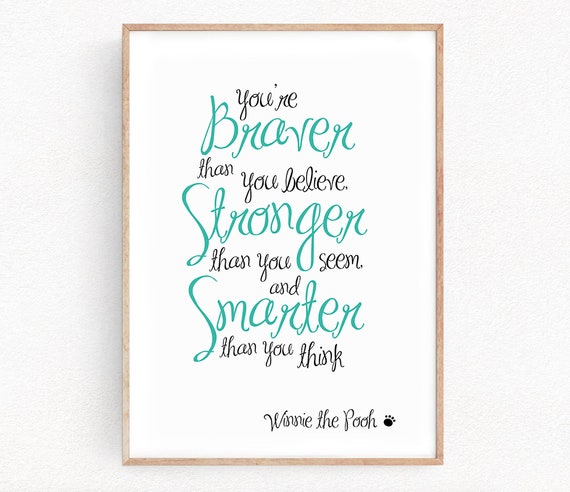 You're
Braver
than you believe,
Stronger
than you seem,
and
Smarter
than you think
Winnie the Pooh